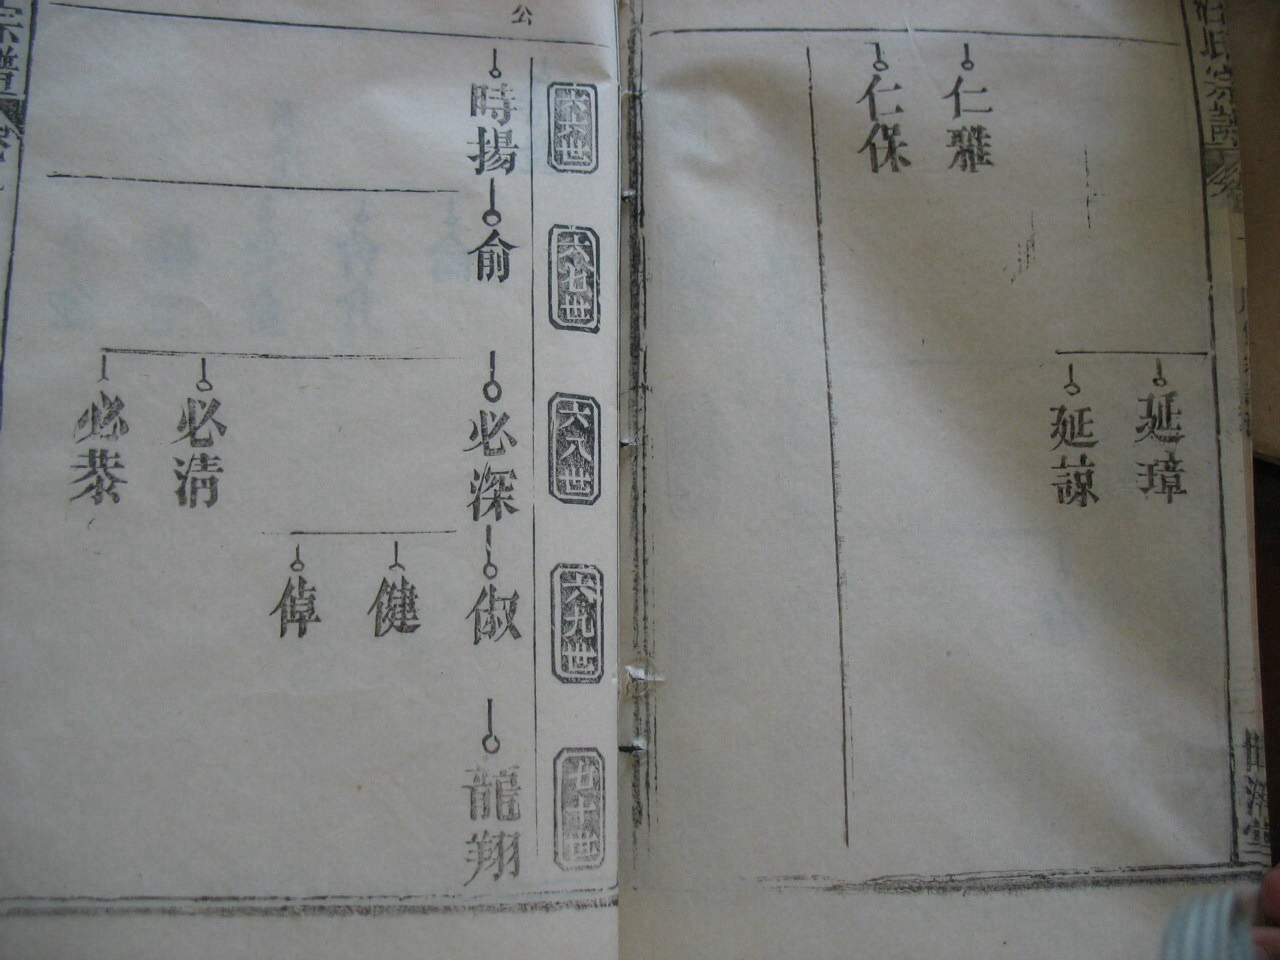 氏宗譜
仁雅
仁保
延璋
延諒
六六世
六七世
六八世
六九世
七十世
公
時揚
俞
必深
必清
必恭
俶
健
倬
龍翔
宗譜